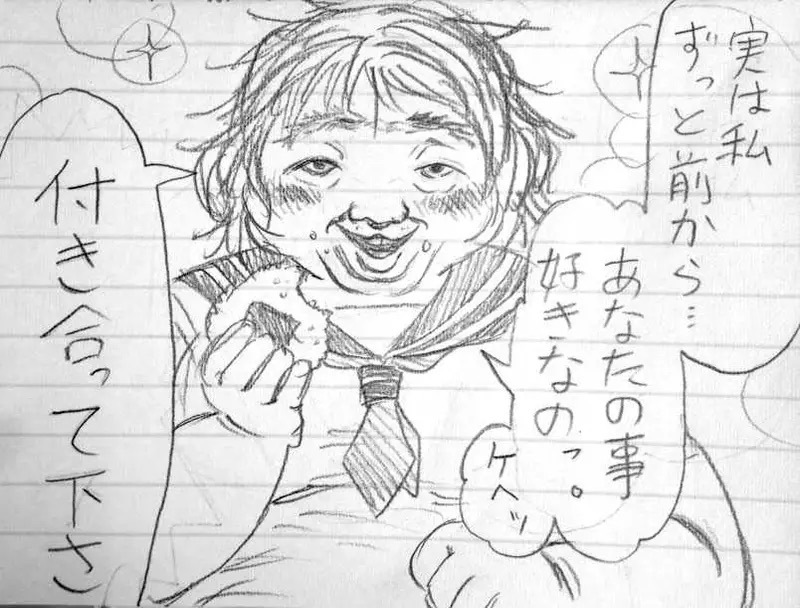 実は私
ずっと前から…
あなたの事
好きなのっ。
ケヘッ
付き合って下さ